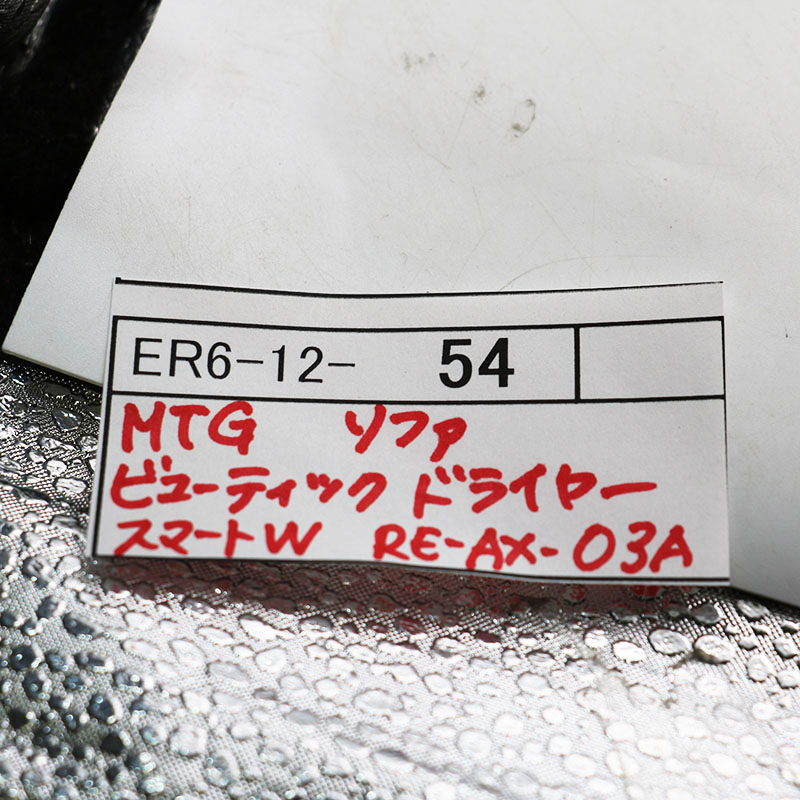 ER6-12- 54
MTG リファ
ビューティック ドライヤー
スマートW RE-AX-03A